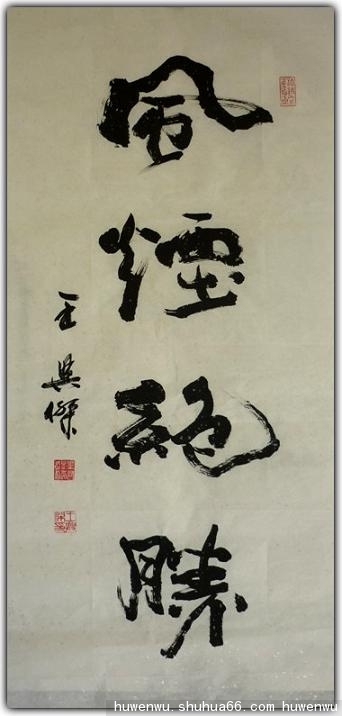 風煙絕勝
huwenwu.shuhua66.com huwenwu